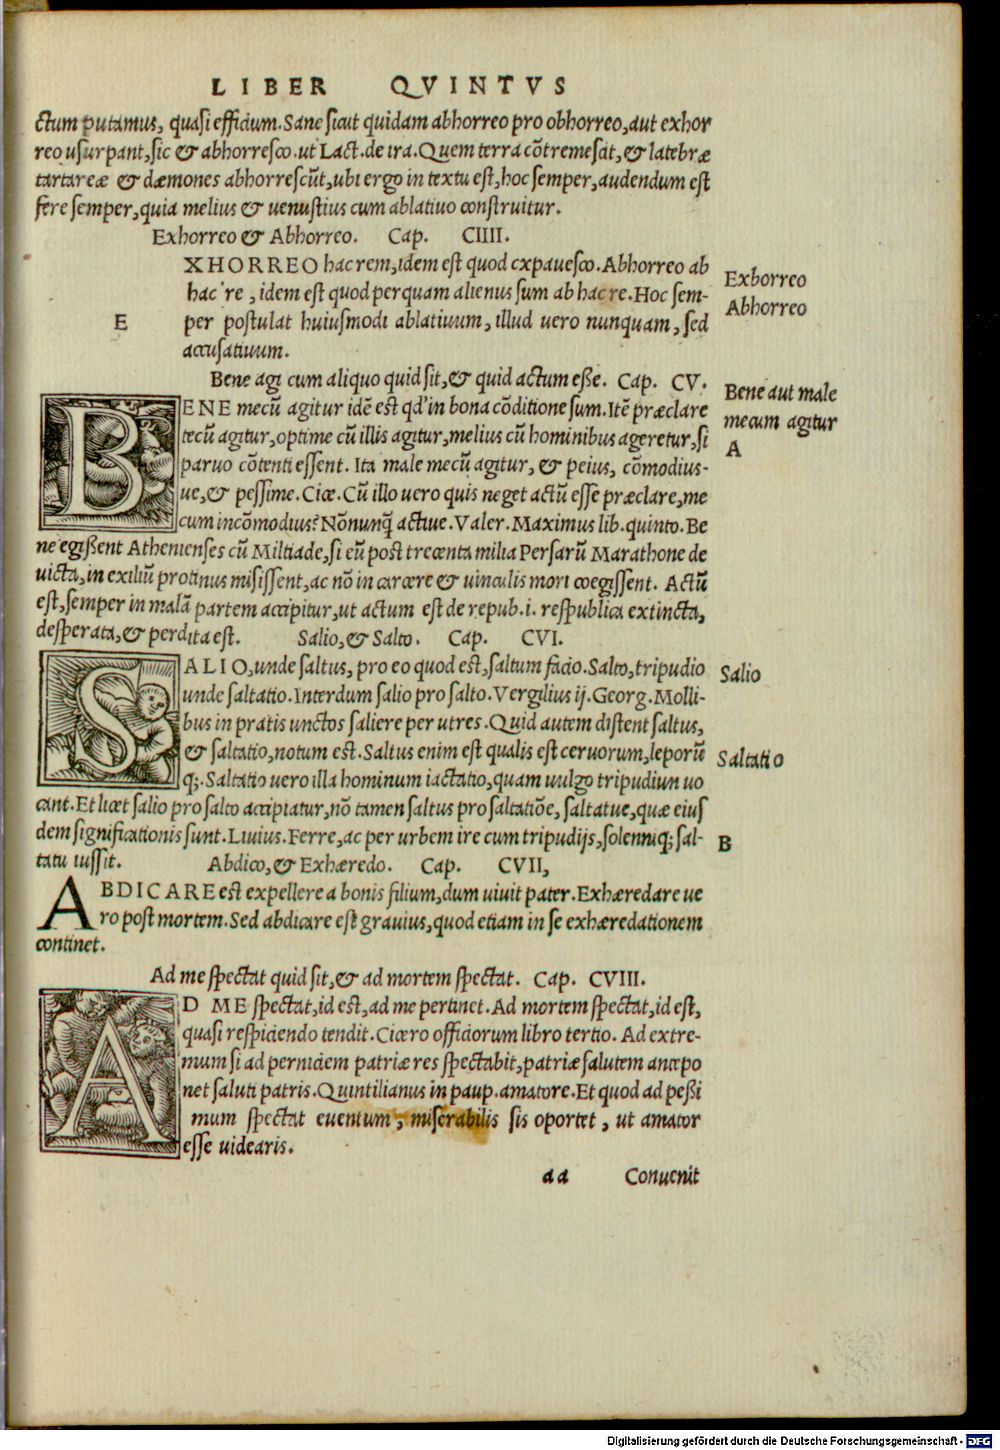 LIBER QVINTVS
ctum putamus, quasi efficium. Sane sicut quidam abhorreo pro obhorreo, aut exhor
reo usurpant, sic & abhorresco. ut Lact. de ira. Quem terra cõtremescãt, & latebræ
tartareæ & dæmones abhorrescũt, ubi ergo in textu est, hoc semper, audendum est
fere semper, quia melius & uenustius cum ablatiuo construitur.
Exhorreo & Abhorreo. Cap. CIIII.
XHORREO hac rem, idem est quod expauesco. Abhorreo ab
Exhorreo
hac re, idem est quod perquam alienus sum ab hac re. Hoc sem-
Abhorreo
E per postulat huiusmodi ablatiuum, illud uero nunquam, sed
accusatiuum.
Bene agi cum aliquo quid sit, & quid actum eße. Cap. CV.
Bene aut male
BENE mecũ agitur idẽ est qd' in bona cõditione sum. Itẽ præclare
mecum agitur
tecũ agitur, optime cũ illis agitur, melius cũ hominibus ageretur, si
A
paruo cõtenti essent. Ita male mecũ agitur, & peius, cõmodius-
ue, & pessime. Cice. Cũ illo uero quis neget actũ esse præclare, me
cum incõmodius? Nõnunq̃ actiue. Valer. Maximus lib. quinto. Be
ne egißent Athenienses cũ Miltiade, si eũ post trecenta milia Persarũ Marathone de
uicta, in exiliũ protinus misissent, ac nõ in carcere & uinculis mori coegissent. Actũ
est, semper in malã partem accipitur, ut actum est de repub. i. respublica extincta,
desperata, & perdita est. Salio, & Salto. Cap. CVI.
SALIO, unde saltus, pro eo quod est, saltum facio. Salto, tripudio
Salio
unde saltatio. Interdum salio pro salto. Vergilius ij. Georg. Molli-
bus in pratis unctos saliere per utres. Quid autem distent saltus,
& saltatio, notum est. Saltus enim est qualis est ceruorum, leporũ
Saltatio
q;. Saltatio uero illa hominum iactatio, quam uulgo tripudium uo
cant. Et licet salio pro salto accipiatur, nõ tamen saltus pro saltatiõe, saltatue, quæ eius
dem significationis sunt. Liuius. Ferre, ac per urbem ire cum tripudijs, solenniq; sal-
B
tatu iussit. Abdico, & Exhæredo. Cap. CVII,
ABDICARE est expellere a bonis filium, dum uiuit pater. Exhæredare ue
ro post mortem. Sed abdicare est grauius, quod etiam in se exhæredationem
continet.
Ad me spectat quid sit, & ad mortem spectat. Cap. CVIII.
AD ME spectat, id est, ad me pertinet. Ad mortem spectat, id est,
quasi respiciendo tendit. Cicero officiorum libro tertio. Ad extre-
mum si ad perniciem patriæ res spectabit, patriæ salutem antepo
net saluti patris. Quintilianus in paup. amatore. Et quod ad peßi
mum spectat euentum, miserabilis sis oportet, ut amator
esse uidearis.
aa Conuenit
Digitalisierung gefördert durch die Deutsche Forschungsgemeinschaft - DFG